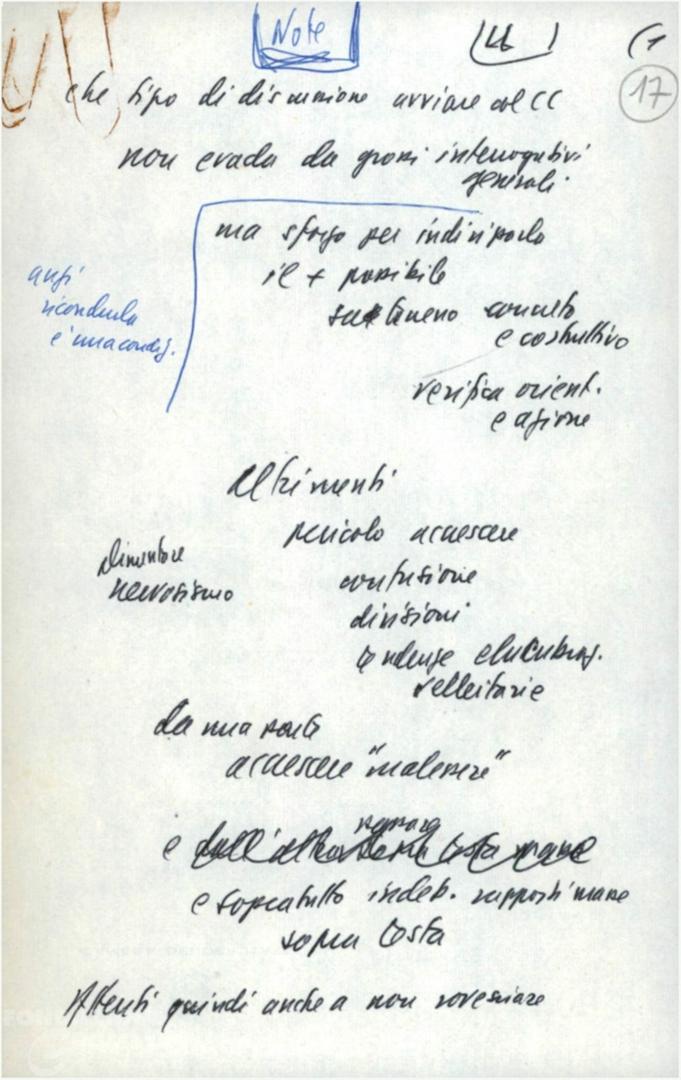 Note
(1
17
che tipo di discussione avviare nel CC
non evada da grossi interrogativi
generali.
ma sforzo per indirizzarlo
il + possibile
sul terreno concreto
e costruttivo
anzi
ricondurla
è una condiz.
verifica orient.
e azione
Altrimenti
pericolo accrescere
diventare
nervosismo
confusione
divisioni
tendenze elucubraz.
velleitarie
da una parte
accrescere "malessere"
e dall'altra
e sopratutto indeb. rapporti masse
sopra Costa
Attenti quindi anche a non rovesciare